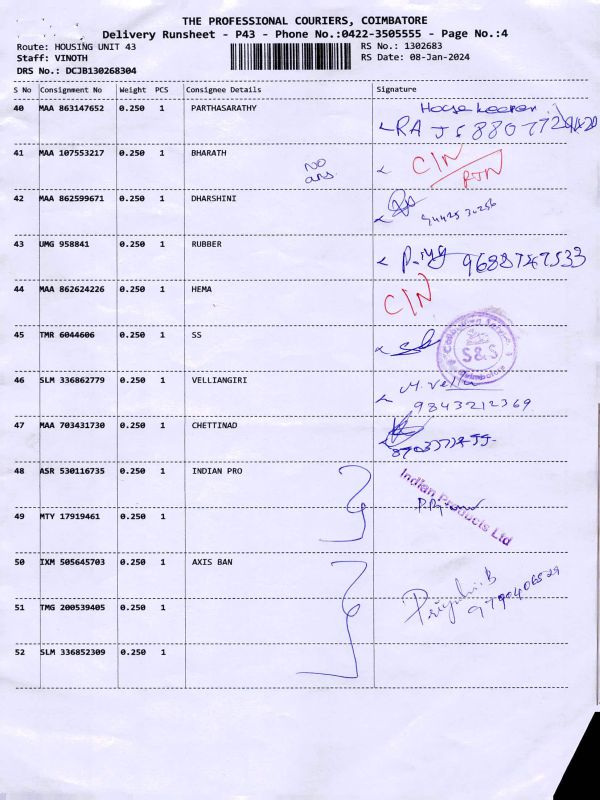 THE PROFESSIONAL COURIERS, COIMBATORE
Delivery Runsheet - P43 - Phone No.:0422-3505555 - Page No.:4
Route: HOUSING UNIT 43 RS No.: 1302683
Staff: VINOTH RS Date: 08-Jan-2024
DRS No.: DCJB130268304
S No Consignment No Weight PCS Consignee Details Signature
40 MAA 863147652 0.250 1 PARTHASARATHY
41 MAA 107553217 0.250 1 BHARATH No ans. C/N RTN
42 MAA 862599671 0.250 1 DHARSHINI
43 UMG 958841 0.250 1 RUBBER 9688747533
44 MAA 862624226 0.250 1 HEMA C/N
45 TMR 6044606 0.250 1 SS S&S Coimbatore
46 SLM 336862779 0.250 1 VELLIANGIRI M. Vella 9843212369
47 MAA 703431730 0.250 1 CHETTINAD
48 ASR 530116735 0.250 1 INDIAN PRO Indian Products Ltd
49 MTY 17919461 0.250 1
50 IXM 505645703 0.250 1 AXIS BAN 9790406529
51 TMG 200539405 0.250 1
52 SLM 336852309 0.250 1